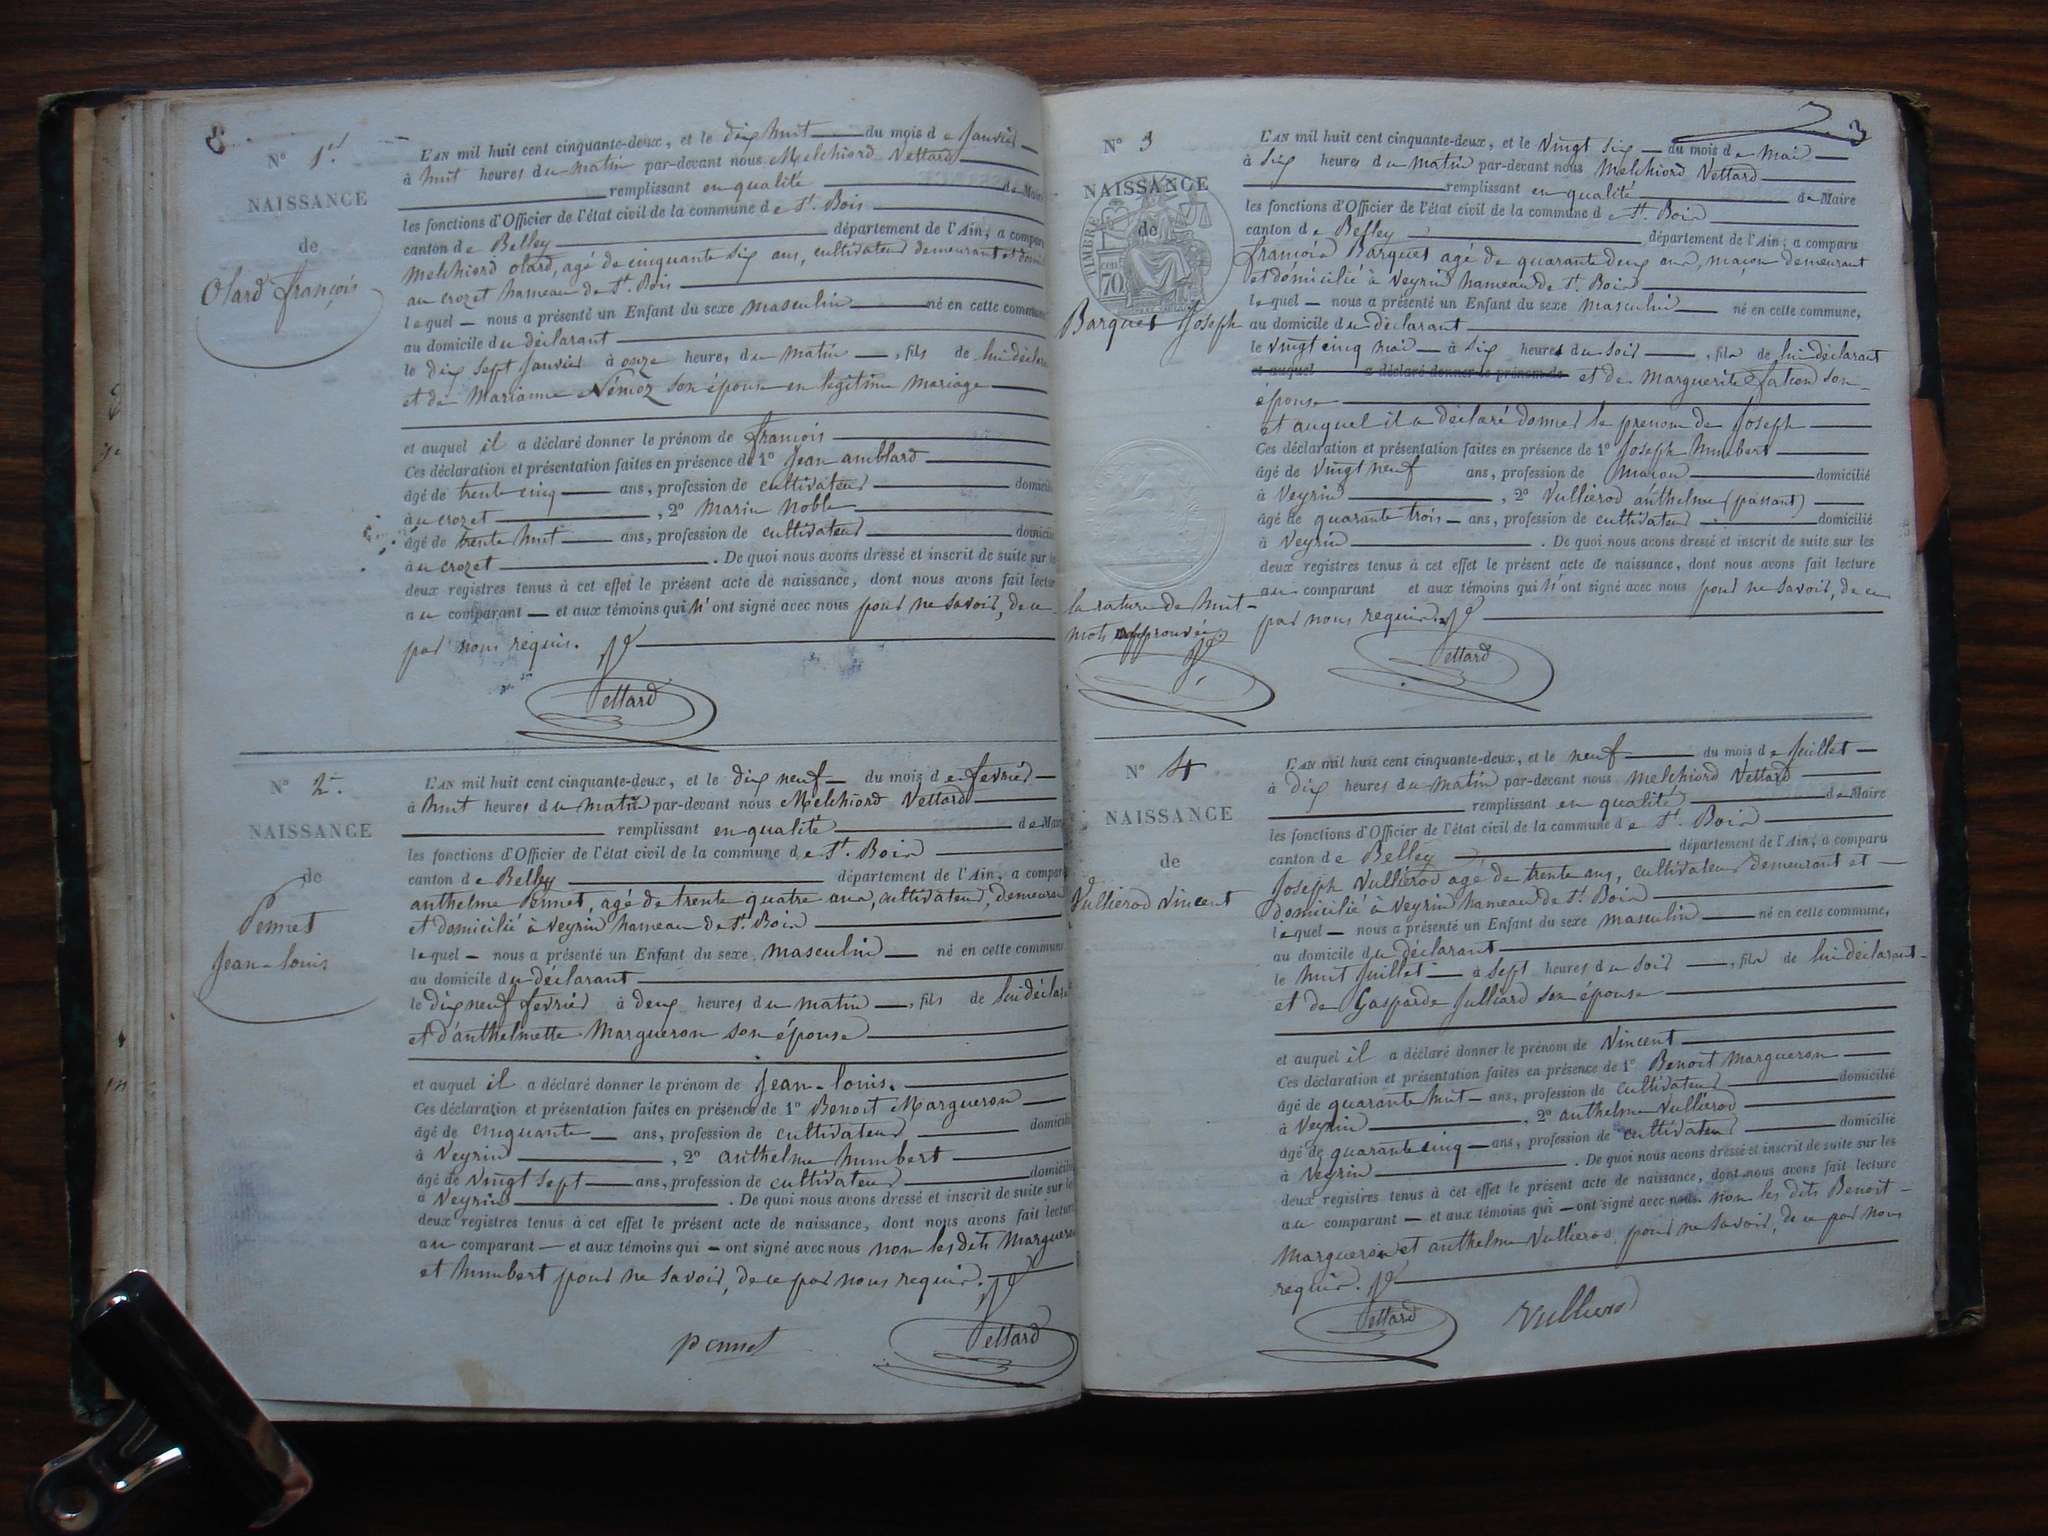 N° 1er
NAISSANCE
de
Olard françois
L'AN mil huit cent cinquante-deux, et le dix huit du mois de Janvier
à huit heures du matin par-devant nous Melchiord Vettard
remplissant en qualité de Maire
les fonctions d'Officier de l'état civil de la commune de St. Bois
canton de Belley département de l'Ain, a comparu
Melchiord olard, agé de cinquante six ans, cultivateur demeurant et
au crozet hameau de St. Bois
lequel nous a présenté un Enfant du sexe masculin né en cette commune
au domicile du déclarant
le dix sept Janvier à onze heures du matin, fils de lui déclarant
et de Marianne Némoz son épouse en légitime mariage
et auquel il a déclaré donner le prénom de françois
Ces déclaration et présentation faites en présence de 1° Jean amblard
âgé de trente cinq ans, profession de cultivateur domicilié
au crozet, 2° Marin Noble
âgé de trente huit ans, profession de cultivateur domicilié
au crozet. De quoi nous avons dressé et inscrit de suite sur les
deux registres tenus à cet effet le présent acte de naissance, dont nous avons fait lecture
au comparant et aux témoins qui n'ont signé avec nous pour ne savoir, de ce
par nous requis.
Vettard
N° 2.
NAISSANCE
de
Pennet
Jean-louis
L'AN mil huit cent cinquante-deux, et le dix neuf du mois de fevrier
à huit heures du matin par-devant nous Melchiord Vettard
remplissant en qualité de Maire
les fonctions d'Officier de l'état civil de la commune de St. Bois
canton de Belley département de l'Ain, a comparu
anthelme Pennet, agé de trente quatre ans, cultivateur, demeurant
et domicilié à Veyrin hameau de St. Bois
lequel nous a présenté un Enfant du sexe masculin né en cette commune
au domicile du déclarant
le dix neuf fevrier à deux heures du matin, fils de lui déclarant
et d'anthelmette Margueron son épouse
et auquel il a déclaré donner le prénom de Jean-louis.
Ces déclaration et présentation faites en présence de 1° Benoit Margueron
âgé de cinquante ans, profession de cultivateur domicilié
à Veyrin, 2° anthelme humbert
âgé de vingt sept ans, profession de cultivateur domicilié
à Veyrin. De quoi nous avons dressé et inscrit de suite sur les
deux registres tenus à cet effet le présent acte de naissance, dont nous avons fait lecture
au comparant et aux témoins qui ont signé avec nous non les dits Margueron
et humbert pour ne savoir, de ce par nous requis.
pennet Vettard
3
N° 3
NAISSANCE
de
TIMBRE
70
Barquet Joseph
L'AN mil huit cent cinquante-deux, et le vingt six du mois de mai
à six heures du matin par-devant nous Melchiord Vettard
remplissant en qualité de Maire
les fonctions d'Officier de l'état civil de la commune de St. Bois
canton de Belley département de l'Ain, a comparu
françois Barquet agé de quarante deux ans, maçon demeurant
et domicilié à Veyrin hameau de St. Bois
lequel nous a présenté un Enfant du sexe masculin né en cette commune,
au domicile du déclarant
le vingt cinq mai à six heures du soir, fils de lui déclarant
et auquel a déclaré donner le prénom de et de Marguerite fation son
épouse
et auquel il a déclaré donner le prenom de Joseph
Ces déclaration et présentation faites en présence de 1° Joseph humbert
âgé de vingt neuf ans, profession de maçon domicilié
à Veyrin, 2° Vullierod anthelme (passant)
âgé de quarante trois ans, profession de cultivateur domicilié
à Veyrin. De quoi nous avons dressé et inscrit de suite sur les
deux registres tenus à cet effet le présent acte de naissance, dont nous avons fait lecture
au comparant et aux témoins qui n'ont signé avec nous pour ne savoir, de ce
par nous requis.
la rature de huit
mots approuvée.
Vettard
N° 4
NAISSANCE
de
Vullierod Vincent
L'AN mil huit cent cinquante-deux, et le neuf du mois de Juillet
à dix heures du matin par-devant nous Melchiord Vettard
remplissant en qualité de Maire
les fonctions d'Officier de l'état civil de la commune de St. Bois
canton de Belley département de l'Ain, a comparu
Joseph Vullierod agé de trente ans, cultivateur demeurant et
domicilié à Veyrin hameau de St. Bois
lequel nous a présenté un Enfant du sexe masculin né en cette commune,
au domicile du déclarant
le huit Juillet à sept heures du soir, fils de lui déclarant
et de Gasparde Julliard son épouse
et auquel il a déclaré donner le prénom de Vincent
Ces déclaration et présentation faites en présence de 1° Benoit Margueron
âgé de quarante huit ans, profession de cultivateur domicilié
à Veyrin, 2° anthelme Vullierod
âgé de quarante cinq ans, profession de cultivateur domicilié
à Veyrin. De quoi nous avons dressé et inscrit de suite sur les
deux registres tenus à cet effet le présent acte de naissance, dont nous avons fait lecture
au comparant et aux témoins qui ont signé avec nous non les dits Benoit
Margueron et anthelme Vullierod pour ne savoir, de ce par nous
requis.
Vettard Vullierod